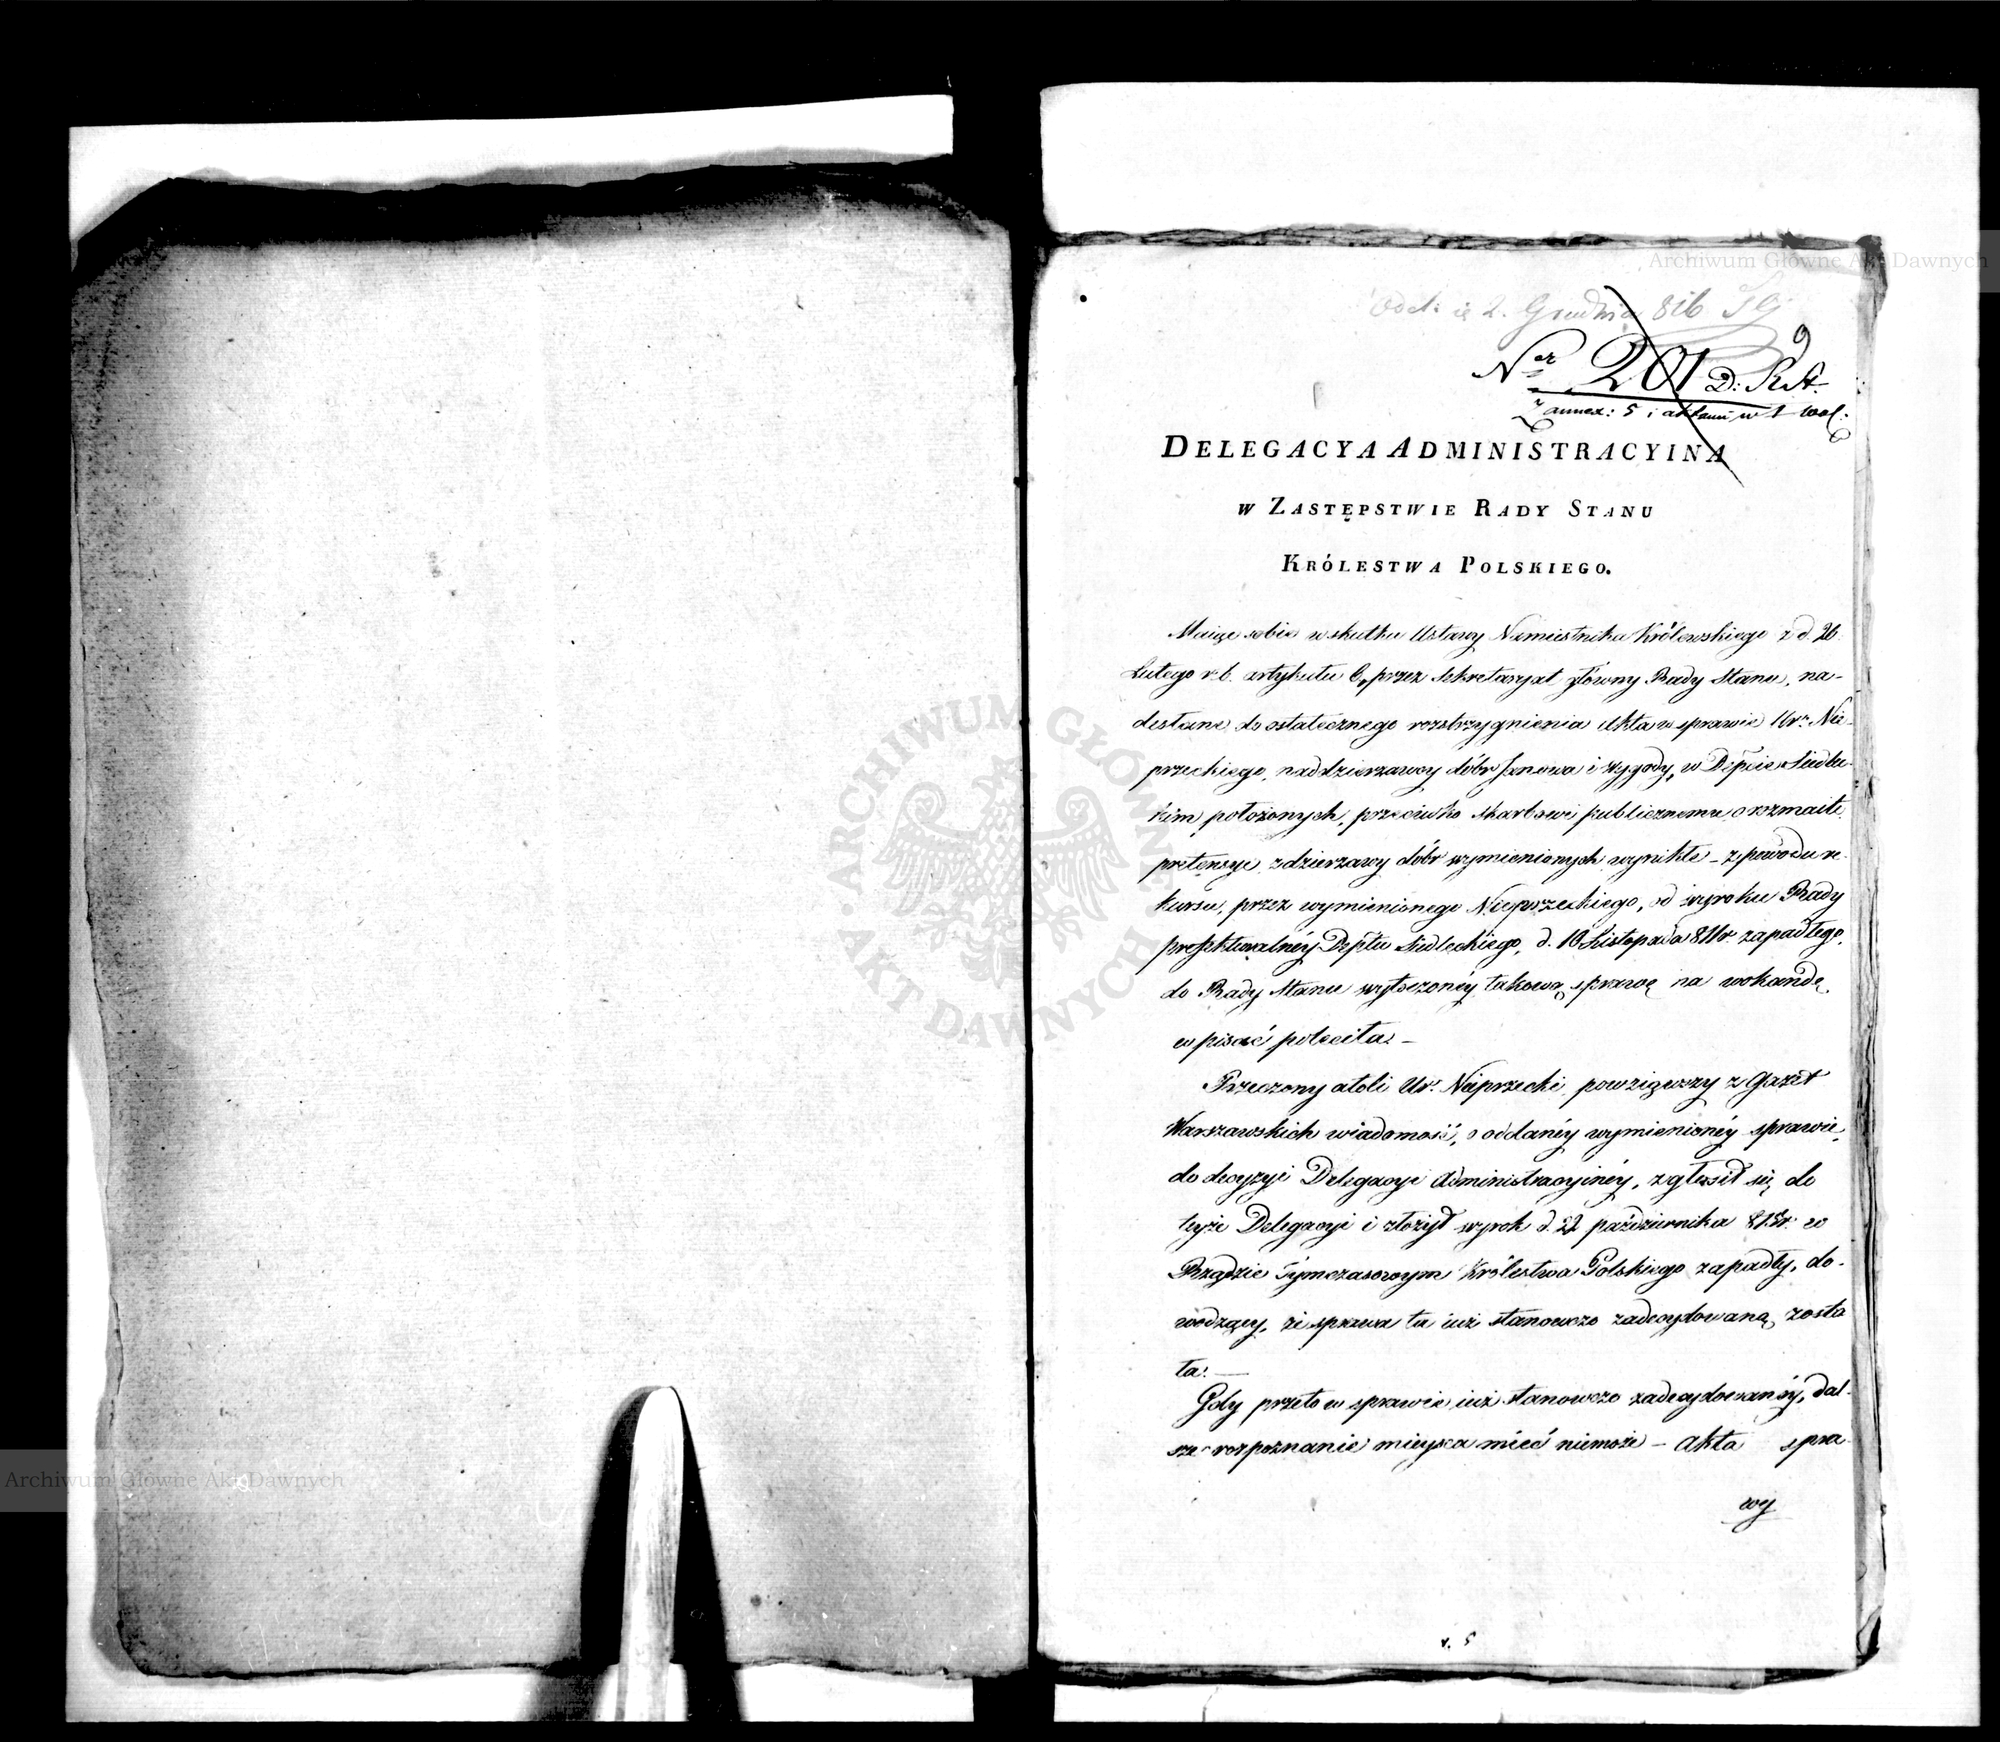 Archiwum Główne Akt Dawnych
Odd: 2. Grudnia 816
9
Ner 201 D: R.A.
z annex: 5 i aktami w 1 wol:
DELEGACYA ADMINISTRACYINA
W ZASTĘPSTWIE RADY STANU
KRÓLESTWA POLSKIEGO.
Maiąc sobie w skutku Ustawy Namiestnika Królewskiego z d. 26
Lutego r. b. artykułu 6, przez Sekretaryat główny Rady Stanu, na-
desłane do ostatecznego rozstrzygnienia Akta w sprawie Ur. Nie-
przeckiego, naddzierzawcy dóbr Janowa i Wygody, w Depcie Siedlec-
kim położonych, przeciwko Skarbowi publicznemu, o rozmaite
pretensye z dzierzawy dóbr wymienionych wynikłe - z powodu re-
kursu, przez wymienionego Nieprzeckiego, od wyroku Rady
prefekturalnéy Deptu Siedleckiego, d. 10 Listopada 811r. zapadłego,
do Rady Stanu wytoczonéy takową sprawę na wokandę
wpisać poleciła. -
Rzeczony atoli Ur. Nieprzecki, powziąwszy z Gazet
Warszawskich wiadomość, o oddanéy wymienionéy sprawie,
do decyzyi Delegacyi Administracyinéy, zgłosił się do
teyże Delegacyi i złożył wyrok d. 22 października 815r. w
Rządzie Tymczasowym Królestwa Polskiego zapadły, do-
wodzący, że sprawa ta iuż stanowczo zadecydowaną zosta
ła. -
Gdy przeto w sprawie iuż stanowczo zadecydowanéy, dal-
sze rozpoznanie mieysca mieć niemoże - Akta spra-
wy
v. 5
ARCHIWUM GŁÓWNE AKT DAWNYCH
Archiwum Główne Akt Dawnych